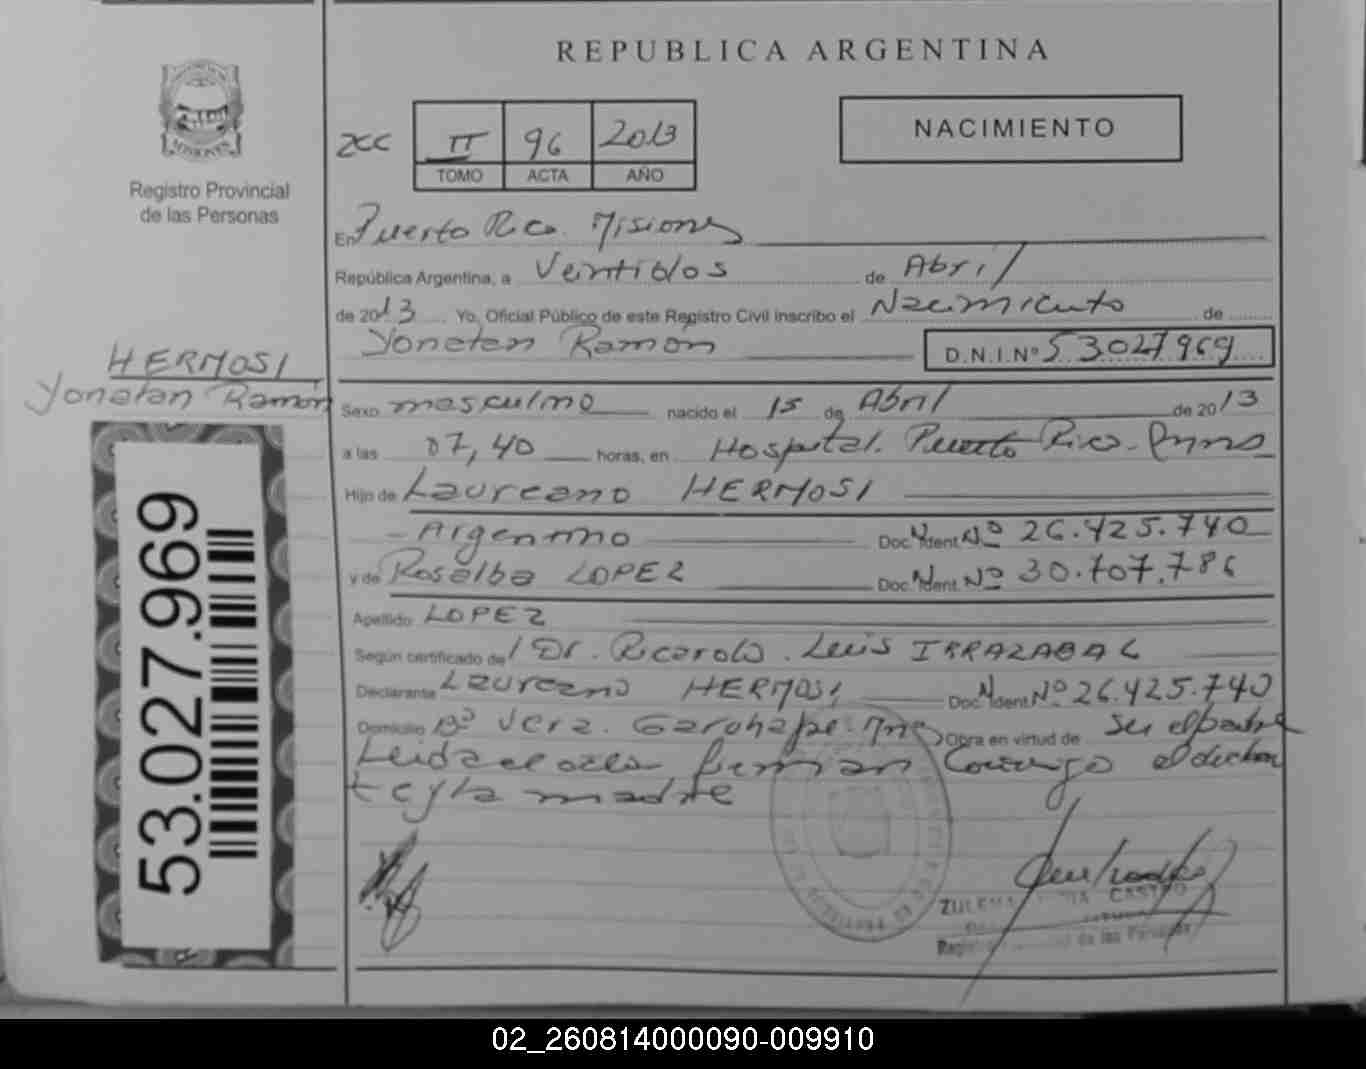 REPUBLICA ARGENTINA
MISIONES
Registro Provincial
de las Personas
II 96 2013
TOMO ACTA AÑO
NACIMIENTO
En Puerto Rico. Misiones
República Argentina, a Veintidos de Abril
de 2013 Yo, Oficial Público de este Registro Civil inscribo el Nacimiento de
Yonatan Ramón D.N.I.Nº 53027969
HERMOSI
Yonatan Ramón
53.027.969
Sexo masculino nacido el 15 de Abril de 2013
a las 07,40 horas, en Hospital. Puerto Rico-
Hijo de Laureano HERMOSI
- Argentino Doc. Ident. Nº 26.425.740
y de Rosalba LOPEZ Doc. Ident. Nº 30.707.786
Apellido LOPEZ
Según certificado de Dr. Ricardo. Luis IRRAZABAL
Declarante Laureano HERMOSI Doc. Ident. Nº 26.425.740
Domicilio Bº Vera. Garuhape. Mnes Obra en virtud de ser el padre
Leida el acta firman Conmigo el declaran
te y la madre
ZULEMA CASTRO
de las Personas
02_260814000090-009910